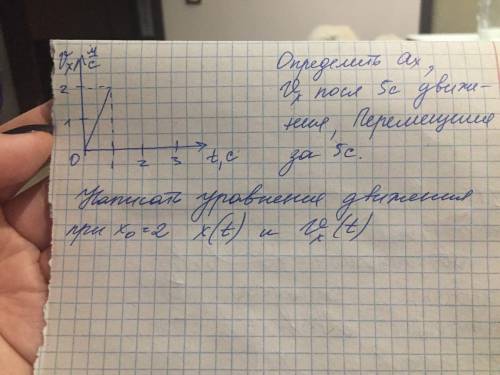 Vx, м/с
Определить ax,
2
Vx после 5с движе-
1
ния, Перемещение
0 1 2 3 t, с
за 5с.
Написать уравнение движения
при x₀=2 x(t) и Vx(t)